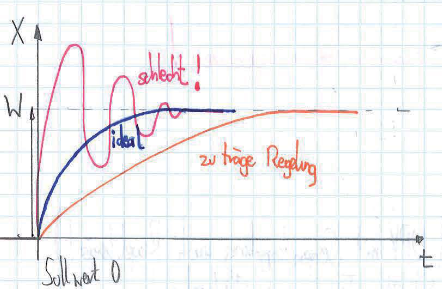 X
schlecht!
W
ideal
zu träge Regelung
t
Sollwert 0